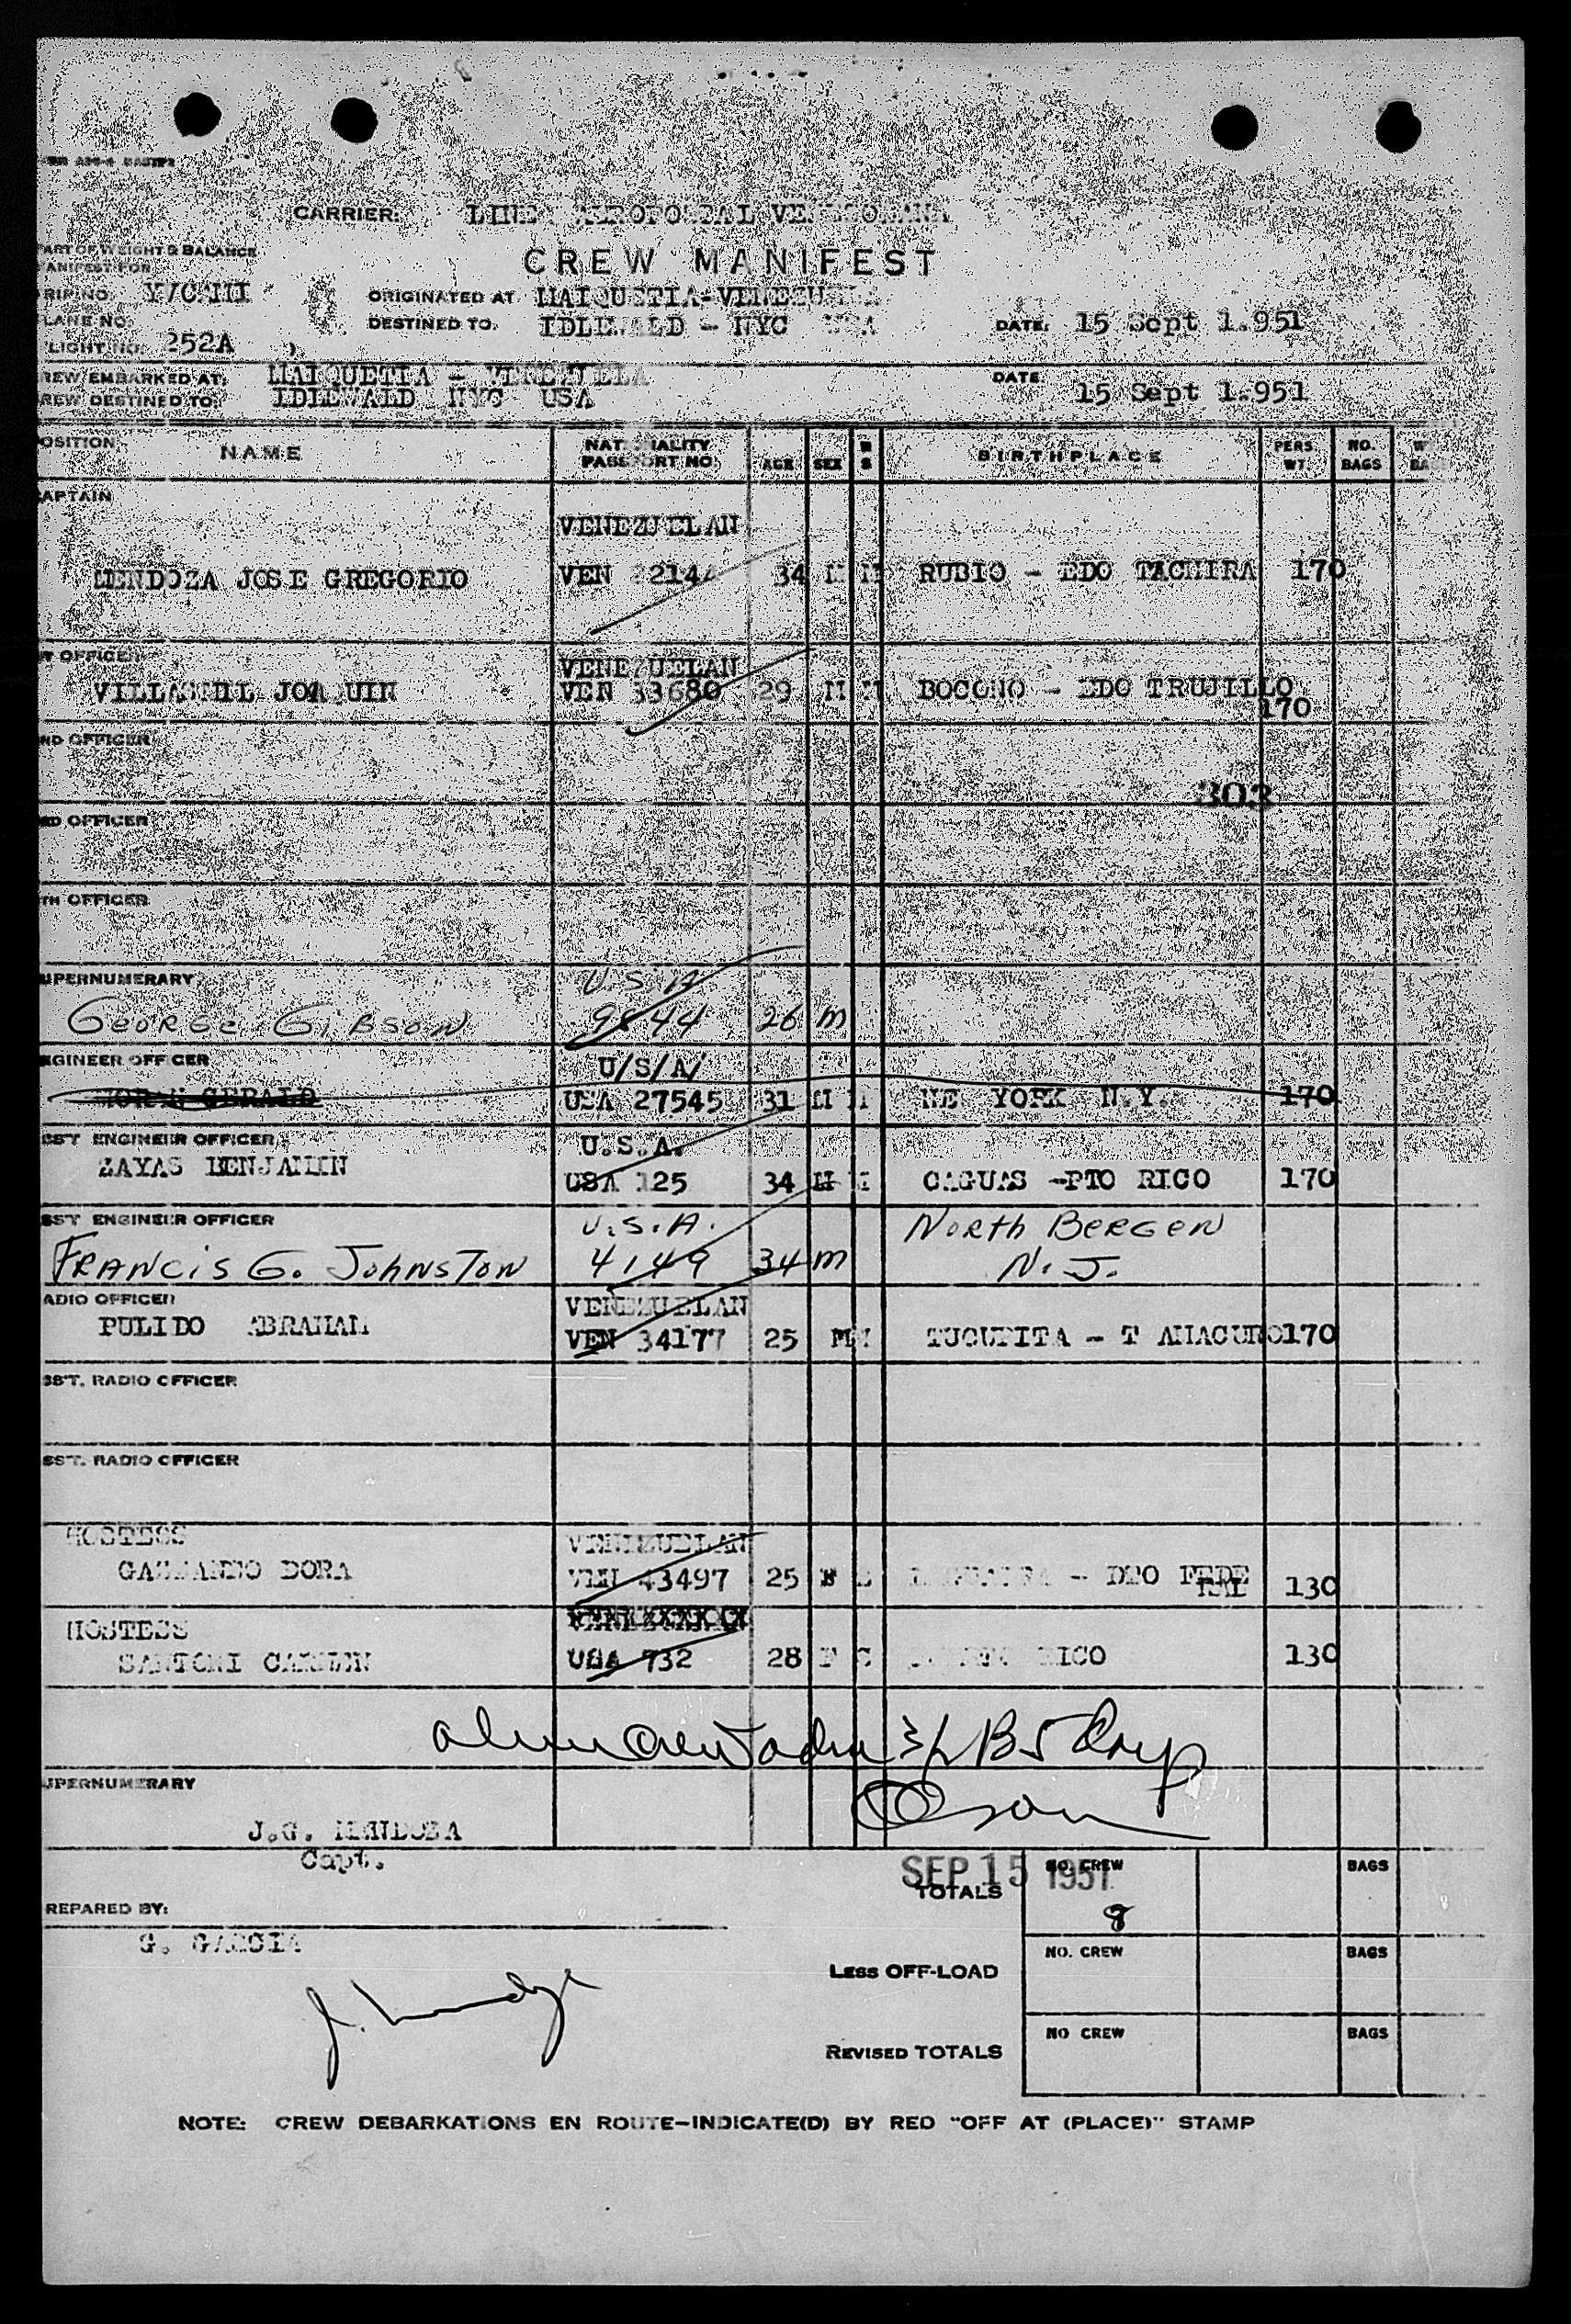 CARRIER: LINEA AEROPOSTAL VENEZOLANA
ART OF WEIGHT & BALANCE
ANIFEST FOR
CREW MANIFEST
RIP NO. Y/C III
ORIGINATED AT MAIQUETIA-VENEZUELA
LANE NO.
DESTINED TO. IDLEWALD - NYC USA DATE: 15 Sept 1.951
LIGHT NO. 252A
REW EMBARKED AT: MAIQUETIA - VENEZUELA DATE 15 Sept 1.951
REW DESTINED TO: IDLEWALD NYC USA
OSITION NAME NATIONALITY PASSPORT NO. AGE SEX M S BIRTHPLACE PERS. WT. NO. BAGS
APTAIN
VENEZUELAN
MENDOZA JOSE GREGORIO VEN 34 M M RUBIO - EDO TACHIRA 170
T OFFICER
VENEZUELAN
JOAQUIN VEN 33680 29 M M BOCONO - EDO TRUJILLO
170
ND OFFICER
303
RD OFFICER
TH OFFICER
UPERNUMERARY U.S.A
GEORGE GIBSON 9844 26 M
NGINEER OFFICER U/S/A/
GERALD USA 27545 31 M M NE YORK N.Y. 170
SS'T ENGINEER OFFICER U.S.A.
ZAYAS BENJAMIN USA 125 34 M M CAGUAS -PTO RICO 170
SS'T ENGINEER OFFICER U.S.A. NORTH BERGEN
FRANCIS G. JOHNSTON 4149 34 M N.J.
ADIO OFFICER VENEZUELAN
PULIDO ABRAHAM VEN 34177 25 M M TUCUPITA - T AMACURO 170
SS'T. RADIO OFFICER
SS'T. RADIO OFFICER
HOSTESS VENEZUELAN
DORA VEN 43497 25 F - DTO FEDE
RAL 130
HOSTESS
SANTONI CARMEN USA 732 28 F S RICO 130
UPERNUMERARY
Olson
J.G. MENDOZA
Capt.
SEP 15 1951
TOTALS NO. CREW BAGS
8
REPARED BY:
G. GARCIA
LESS OFF-LOAD NO. CREW BAGS
REVISED TOTALS NO CREW BAGS
NOTE: CREW DEBARKATIONS EN ROUTE-INDICATE(D) BY RED "OFF AT (PLACE)" STAMP